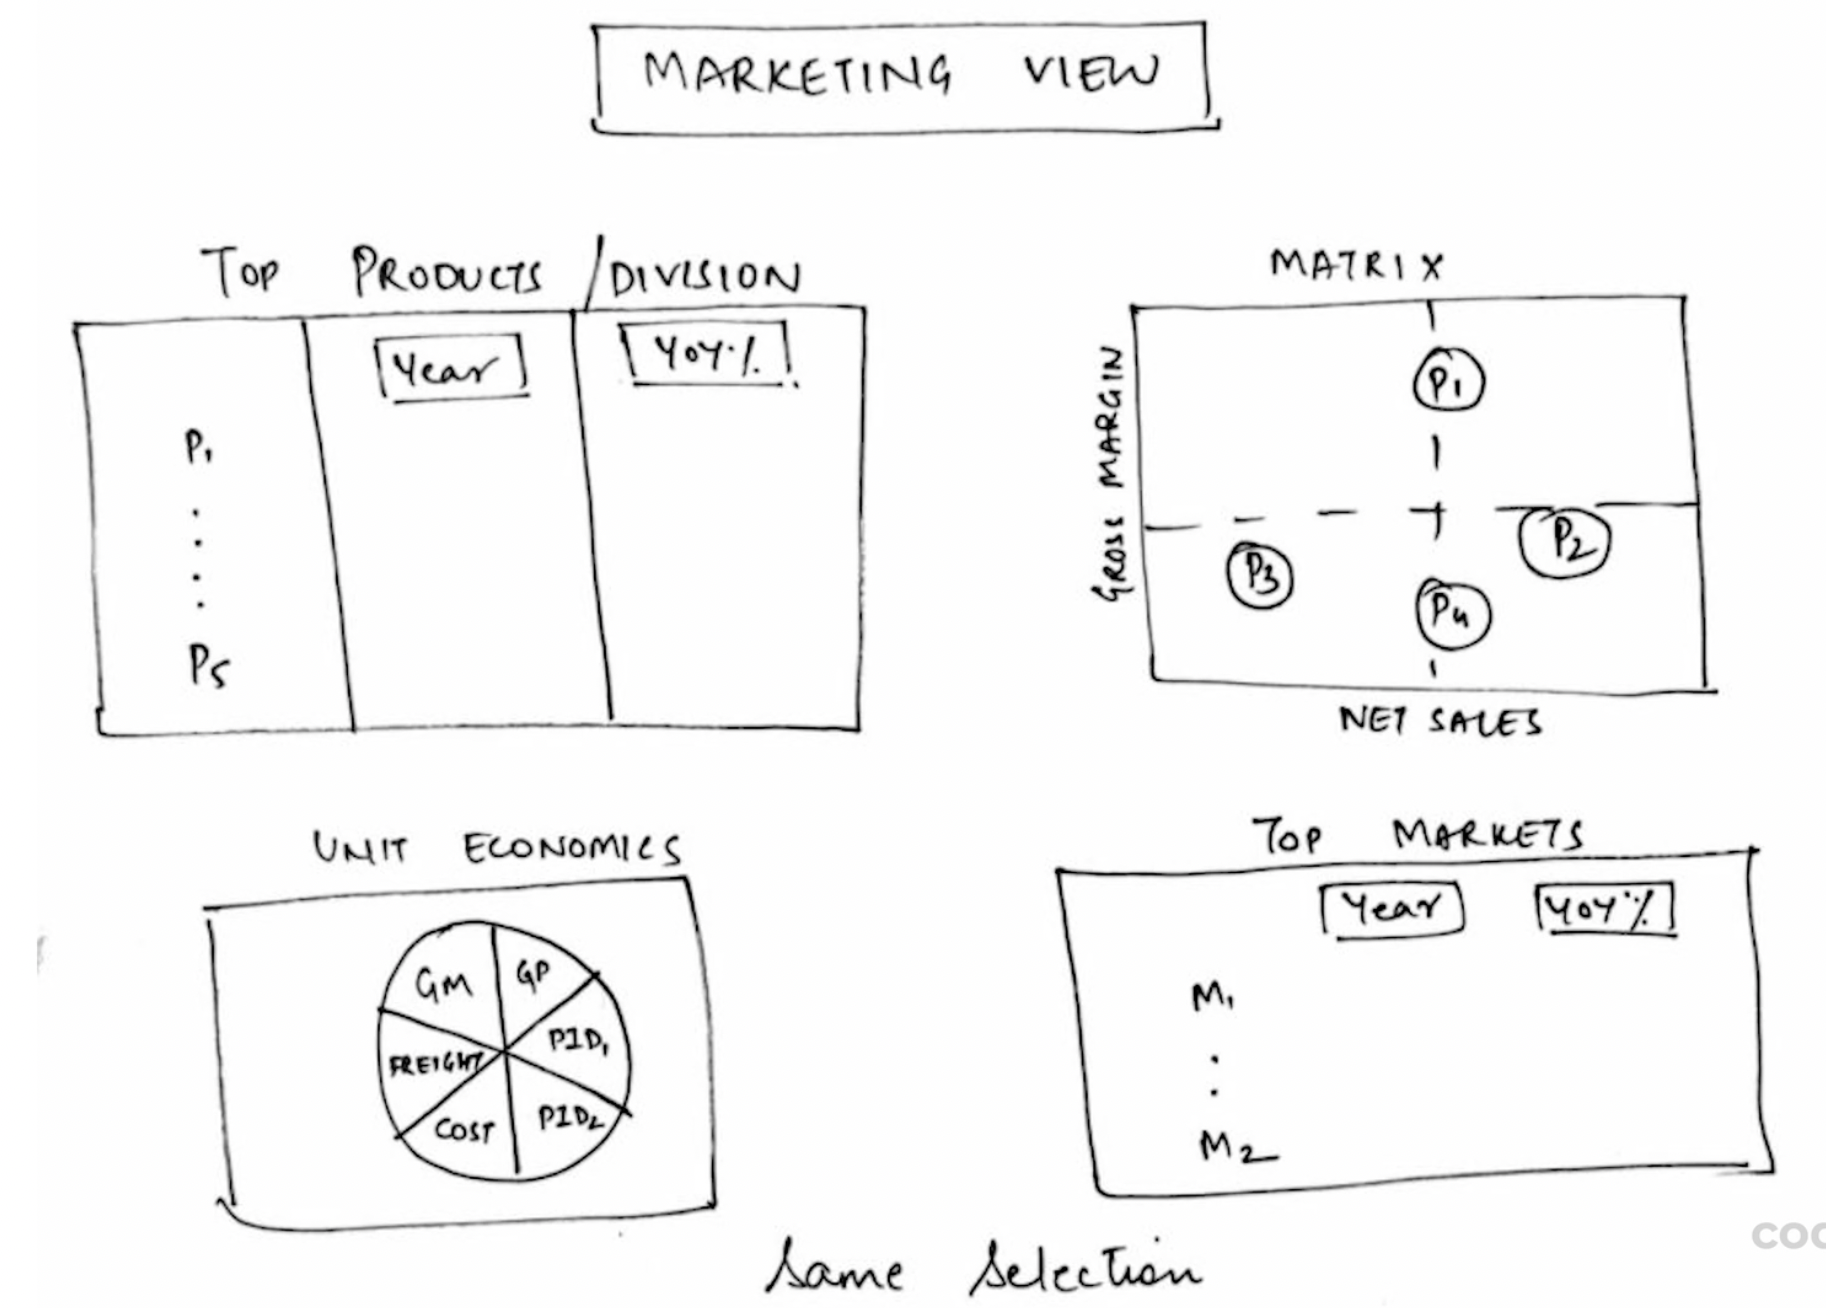 MARKETING VIEW
TOP PRODUCTS / DIVISION
Year YOY%
P1
P5
MATRIX
GROSS MARGIN
P1
P2
P3
P4
NET SALES
UNIT ECONOMICS
GM GP
FREIGHT PID1
COST PID2
TOP MARKETS
Year YOY%
M1
M2
Same Selection